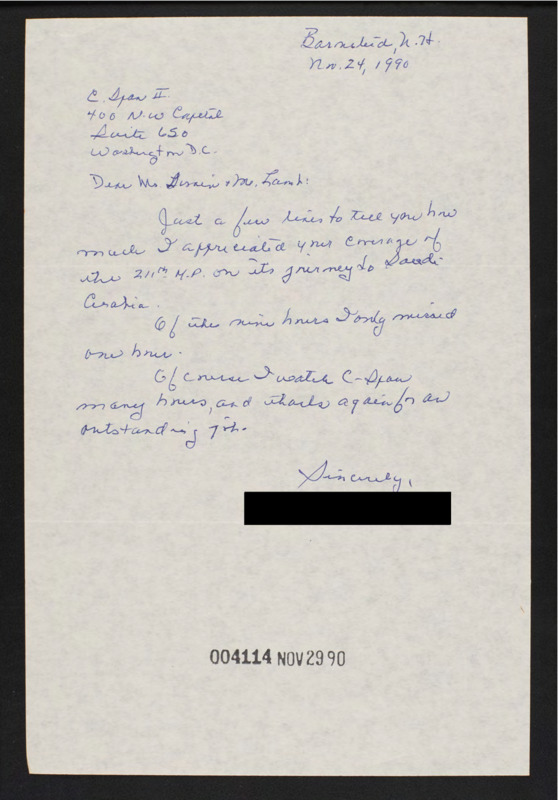 Barnstead, N.H.
Nov. 24, 1990
C. Span II.
400 N.W Capital
Suite 650
Washington D.C.
Dear Ms. & Mr. Lamb:
Just a few lines to tell you how
much I appreciated your coverage of
the 211th M.P. on its journey to Saudi
Arabia.
Of the nine hours I only missed
one hour.
Of course I watch C-Span
many hours, and thanks again for an
outstanding job.
Sincerely,
004114 NOV 29 90